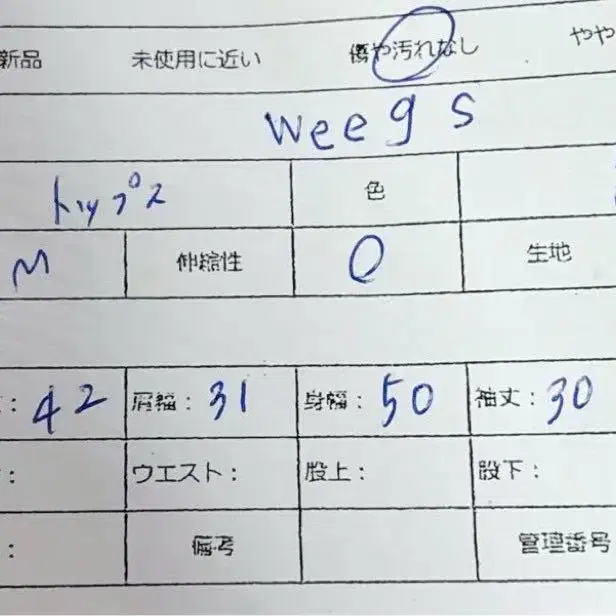 新品 未使用に近い 傷や汚れなし やや
weegs
トップス 色
M 伸縮性 0 生地
: 42 肩幅: 31 身幅: 50 袖丈: 30
: ウエスト: 股上: 股下:
: 備考 管理番号